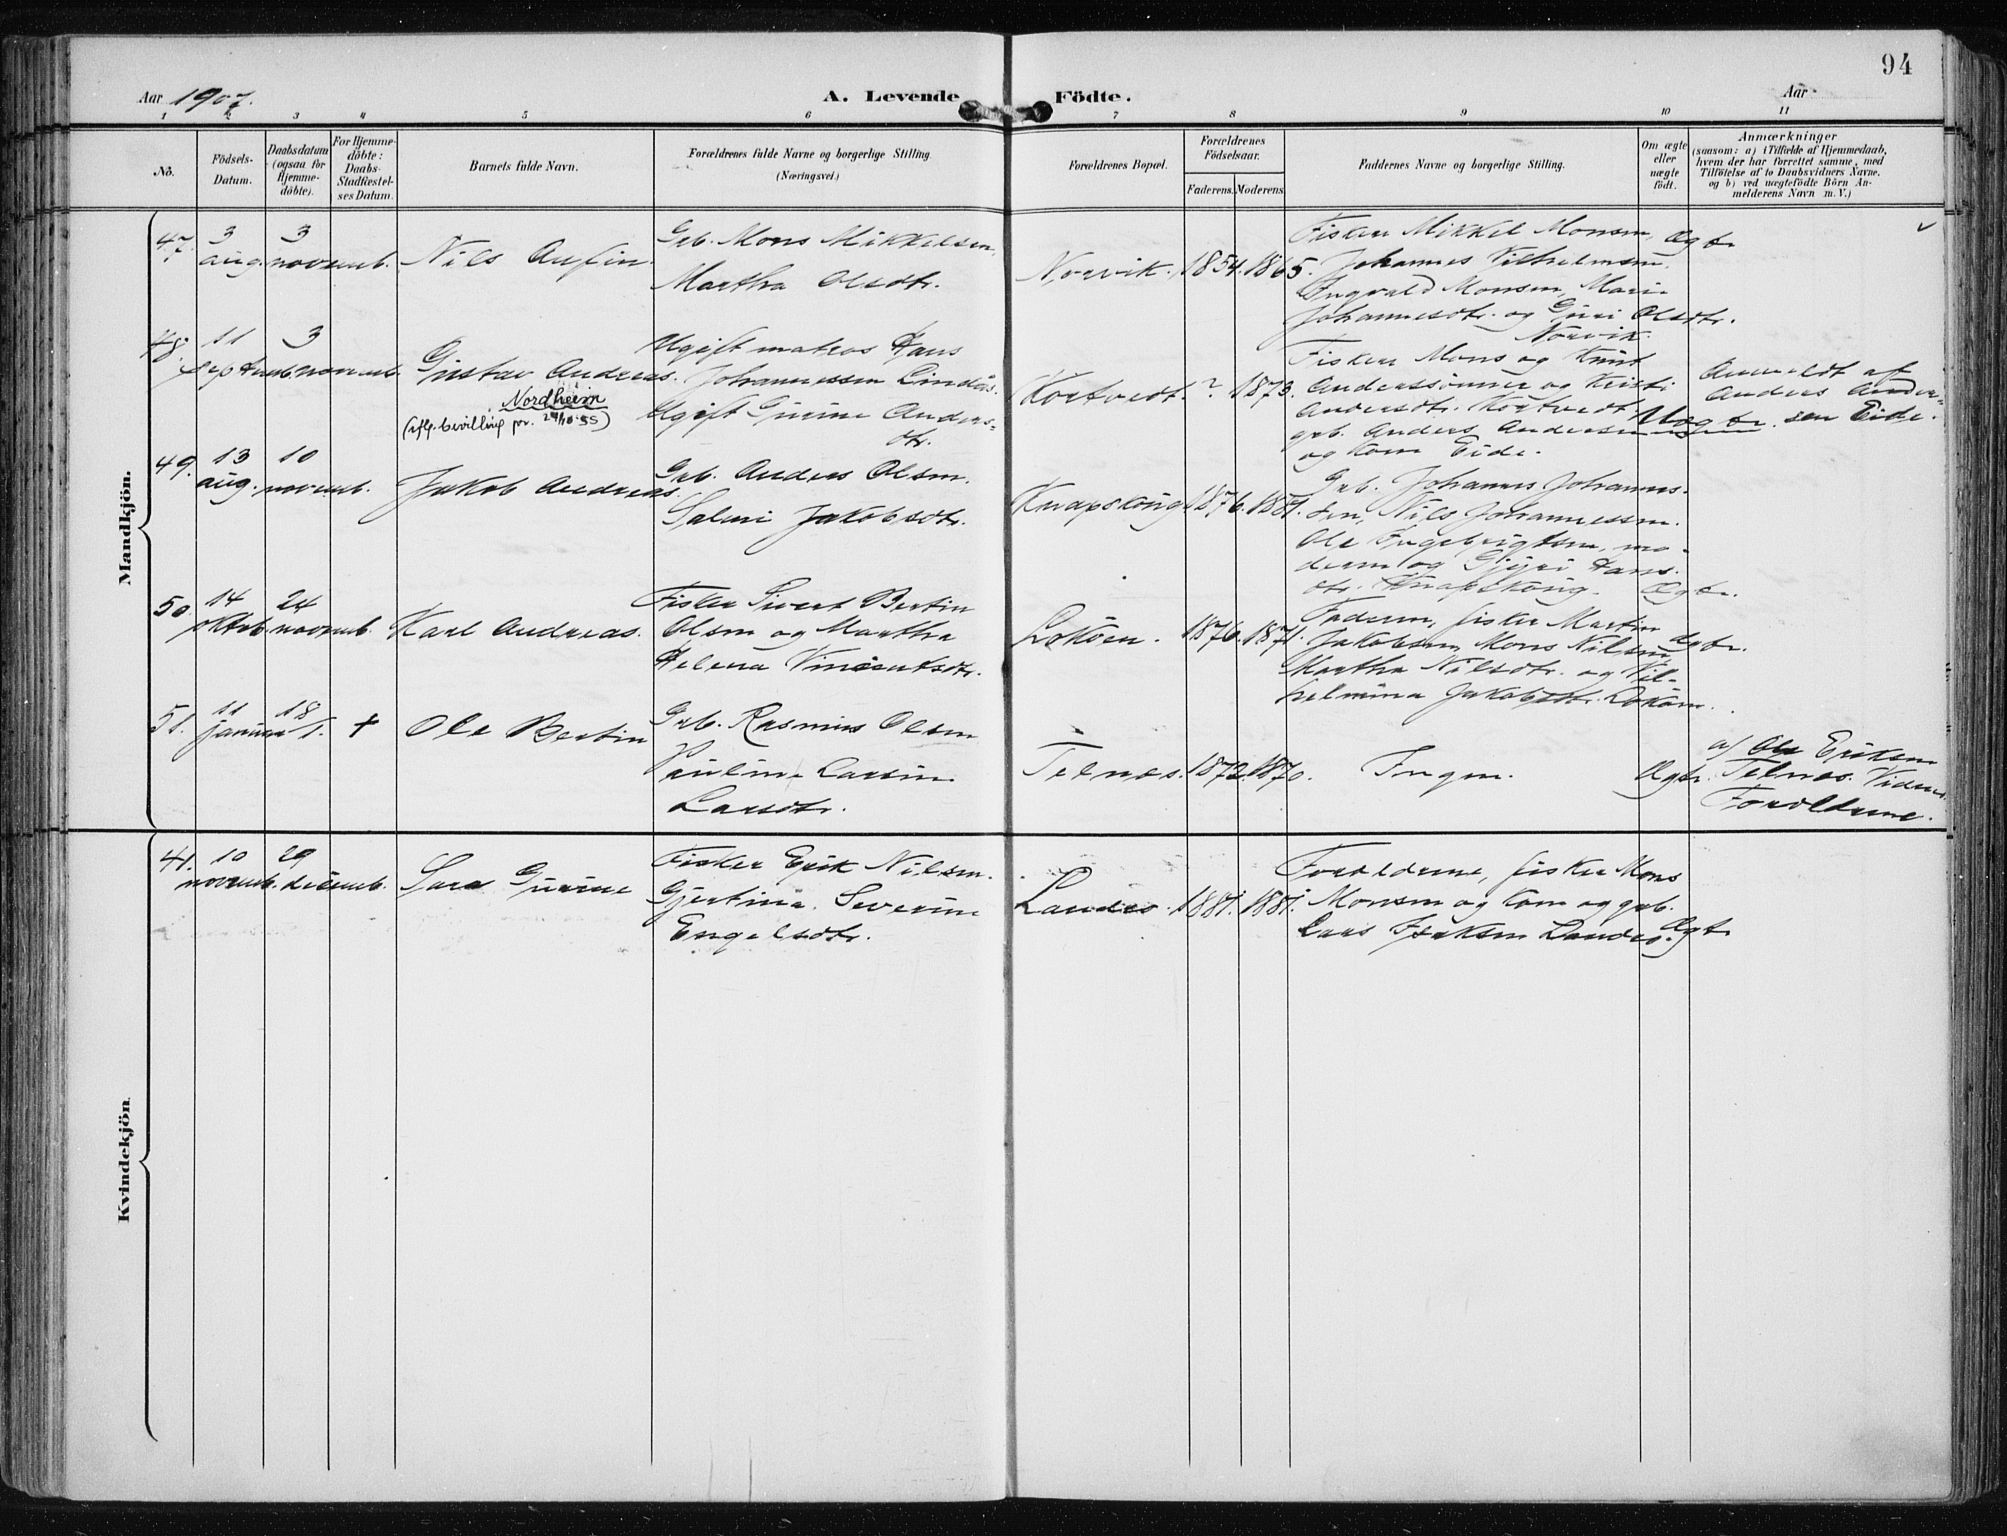 94
Aar 1907.
A. Levende Födte.
Aar
1 2 3 4 5 6 7 8 9 10 11
No.
Födsels-
Datum.
Daabsdatum
(ogsaa for
Hjemme-
döbte).
For Hjemme-
döbte:
Daabs-
Stadfæstel-
ses Datum.
Barnets fulde Navn.
Forældrenes fulde Navne og borgerlige Stilling.
(Næringsvei.)
Forældrenes Bopæl.
Forældrenes
Födselsaar.
Faderens. Moderens.
Faddernes Navne og borgerlige Stilling.
Om ægte
eller
uægte
födt.
Anmærkninger
(saasom: a) i Tilfælde af Hjemmedaab,
hvem der har forrettet samme, med
Tilföielse af to Daabsvidners Navne,
og b) ved uægtefödte Börn An-
melderens Navn m. V.)
Mandkjön.
47.
3
aug.
3
novemb.
Nils Anfin.
Grb. Mons Mikkelsen,
Martha Olsdtr.
Norvik. 1854. 1865.
Fisker Mikkel Monsen,
Johannes Vilhelmsen.
Ingvald Monsen, Mari-
Johannesdtr. og Guri Olsdtr.
Norvik.
Ægte
48.
11
septemb.
3
novemb.
Gustav Andreas.
Nordheim
(iflg. bevilling pr. 24/10-55)
Ugift matros Hans
Johannessen Lindås.
Ugift Gurine Anders-
dtr.
Kortvedt. ? 1873.
Fisker Mons og Knut
Anderssönner og Kristi
Andersdtr. Kortvedt.
grb. Anders Andersen
og Kone Eide.
Uægte.
Anmeldt af
Anders Ander-
sen Eide.
49.
13
aug.
10
novemb.
Jakob Andreas.
Grb. Anders Olsen.
Salmi Jakobsdtr.
Knapskoug 1876. 1881.
Grb. Johannes Johannes-
sen, Nils Johannessen.
Ole Ingebrigtsen, mo-
deren og Gjyri Hans-
dtr. Knapskoug.
Ægte.
50
14
oktob.
24
novemb.
Karl Andreas.
Fisker Sivert Bertin
Olsen og Martha
Helena Vincentsdtr.
Loköen. 1876. 1871.
Faderen, fisker Martin
Jakobsen, Mons Nilsen,
Martha Nilsdtr. og Vil-
helmina Jakobsdtr. Loköen.
Ægte.
51.
11
januar
18
+
Ole Bertin
Grb. Rasmus Olsen
Pauline Larsine
Larsdtr.
Telnæs. 1872. 1870.
Ingen.
Ægte.
af Ole Eriksen
Telnæs. Vidner
Forældrene.
Kvindekjön
41.
10
novemb.
29
decemb.
Sara Gurine
Fisker Erik Nilsen.
Gjertina Severine
Engelsdtr.
Landro. 1881. 1881.
Forældrene, fisker Mons
Monsen og Kone og grb.
Lars Isaksen Landro.
Ægte